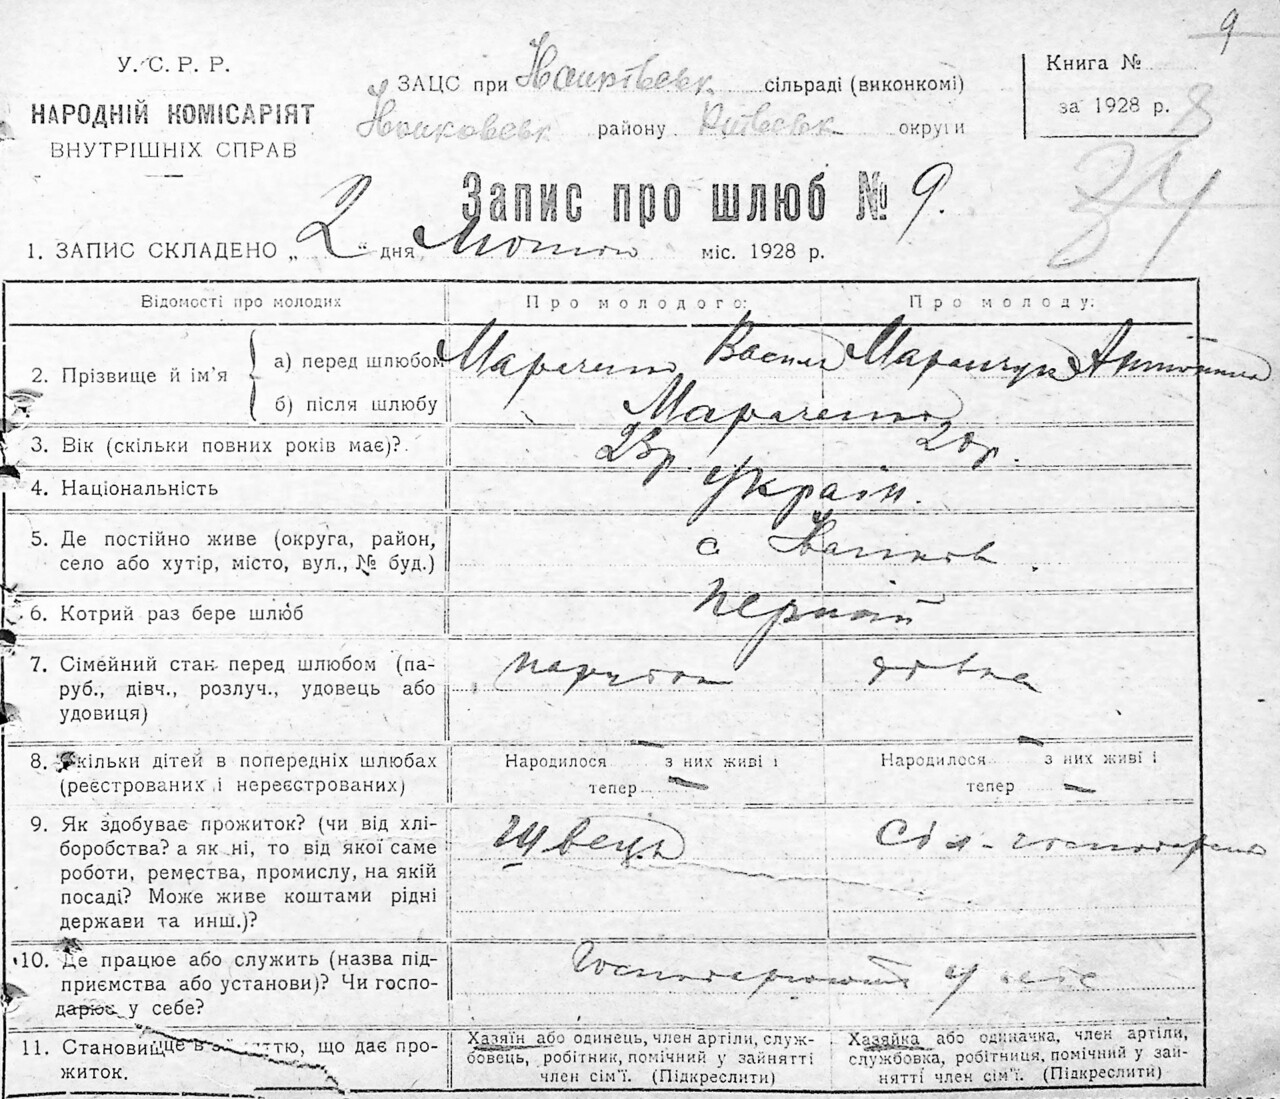 9
У. С. Р. Р.
НАРОДНІЙ КОМІСАРІЯТ
ВНУТРІШНІХ СПРАВ
ЗАЦС при сільраді (виконкомі)
району округи
Книга №
за 1928 р. 8
34
Запис про шлюб № 9.
1. ЗАПИС СКЛАДЕНО „ 2 “ дня Лютого міс. 1928 р.
Відомості про молодих
Про молодого:
Про молоду:
2. Прізвище й ім’я
а) перед шлюбом
Марченко Василь
Антонина
б) після шлюбу
Марченко
3. Вік (скільки повних років має)?
23 р.
20 р.
4. Національність
україн.
5. Де постійно живе (округа, район,
село або хутір, місто, вул., № буд.)
с.
6. Котрий раз бере шлюб
первий
7. Сімейний стан перед шлюбом (па-
руб., дівч., розлуч., удовець або
удовиця)
парубок
дівка
8. Скільки дітей в попередніх шлюбах
(реєстрованих і нереєстрованих)
Народилося — з них живі і
тепер —
Народилося — з них живі і
тепер —
9. Як здобуває прожиток? (чи від хлі-
боробства? а як ні, то від якої саме
роботи, ремества, промислу, на якій
посаді? Може живе коштами рідні
держави та инш.)?
Швець
Сіл-господарство
10. Де працює або служить (назва під-
приємства або установи)? Чи госпо-
дарює у себе?
Господарюют у себе
11. Становище в заняттю, що дає про-
житок.
Хазяїн або одинець, член артіли, служ-
бовець, робітник, помічний у зайнятті
член сім’ї. (Підкреслити)
Хазяйка або одиначка, член артіли,
службовка, робітниця, помічний у зай-
нятті член сім’ї. (Підкреслити)